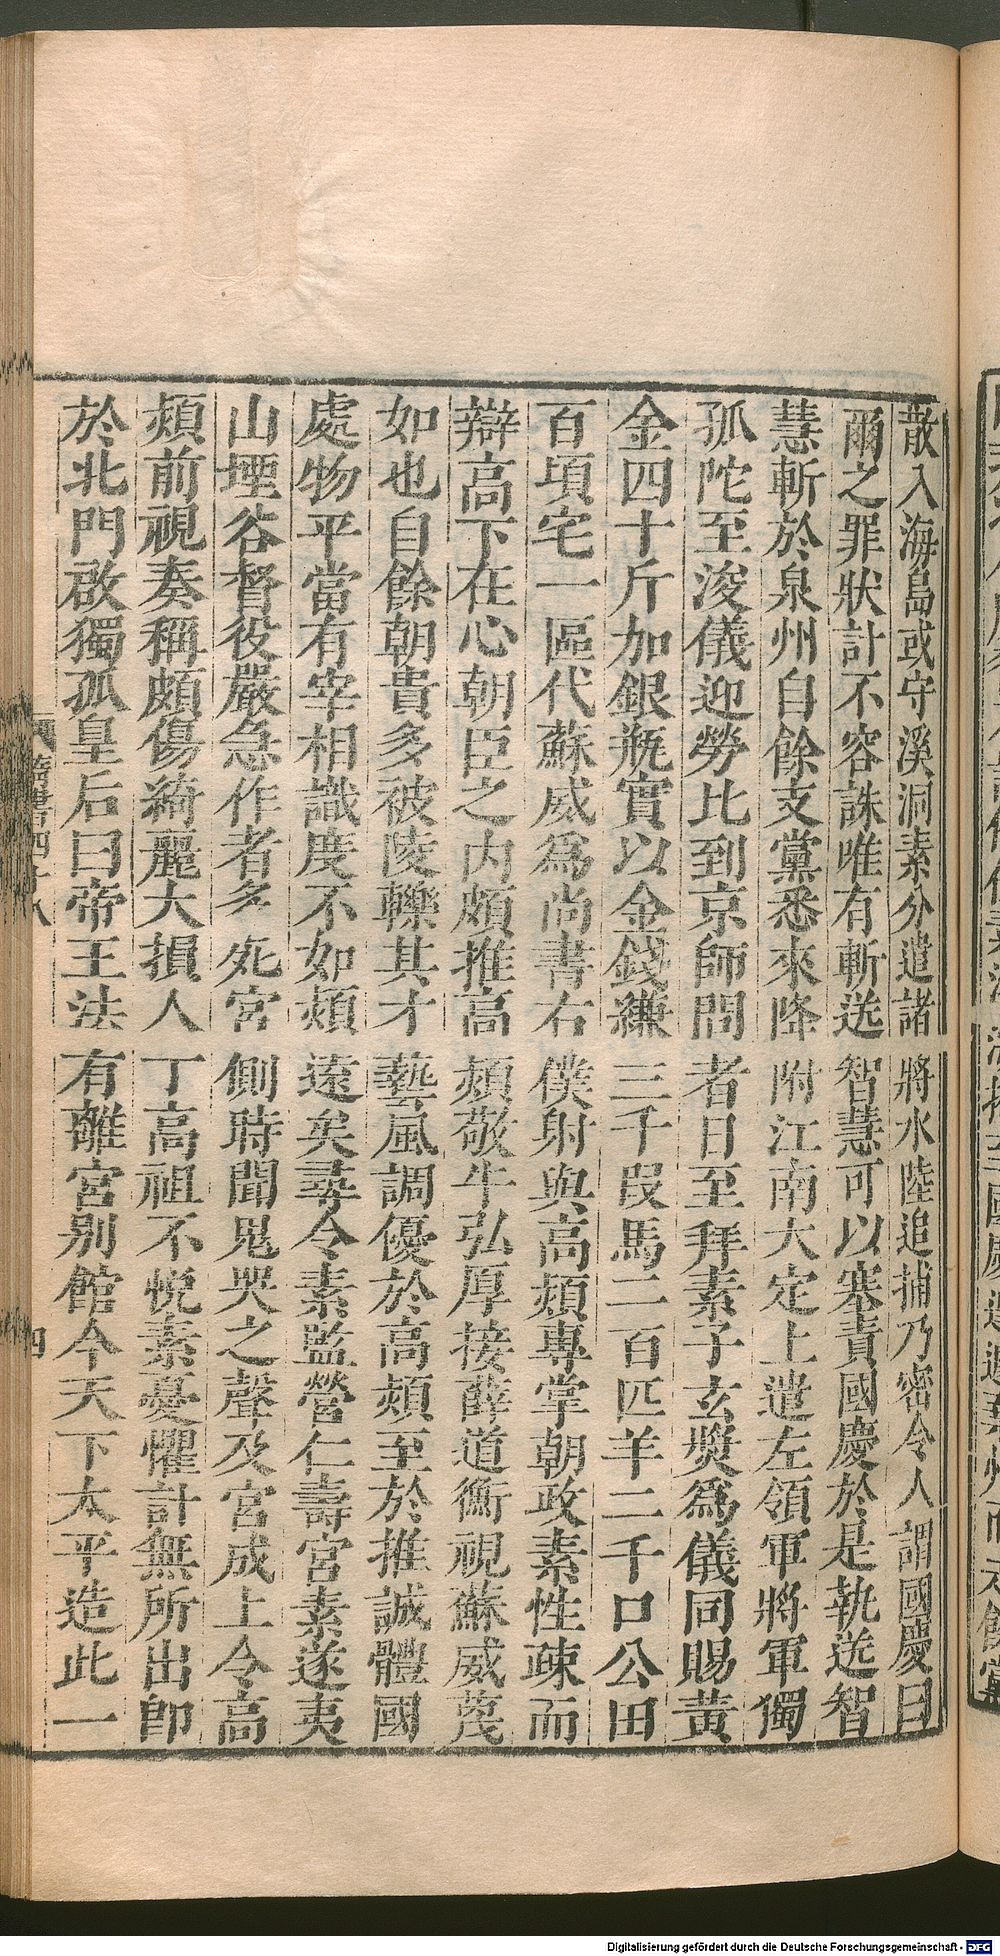 散入海島或守溪洞素分遣諸將水陸追捕乃密令人謂國慶曰
爾之罪狀計不容誅唯有斬送智慧可以塞責國慶於是執送智
慧斬於泉州自餘支黨悉來降附江南大定上遣左領軍將軍獨
孤陀至浚儀迎勞比到京師問者日至拜素子玄奬爲儀同賜黃
金四十斤加銀瓶實以金錢縑三千段馬二百匹羊二千口公田
百頃宅一區代蘇威爲尚書右僕射與高熲專掌朝政素性疎而
辯高下在心朝臣之內頗推高熲敬牛弘厚接薛道衡視蘇威蔑
如也自餘朝貴多被陵轢其才藝風調優於高熲至於推誠體國
處物平當有宰相識度不如熲遠矣尋令素監營仁壽宮素遂夷
山堙谷督役嚴急作者多死宮側時聞鬼哭之聲及宮成上令高
熲前視奏稱頗傷綺麗大損人丁高祖不悅素憂懼計無所出卽
於北門啟獨孤皇后曰帝王法有離宮别館今天下太平造此一
四
Digitalisierung gefördert durch die Deutsche Forschungsgemeinschaft - DFG